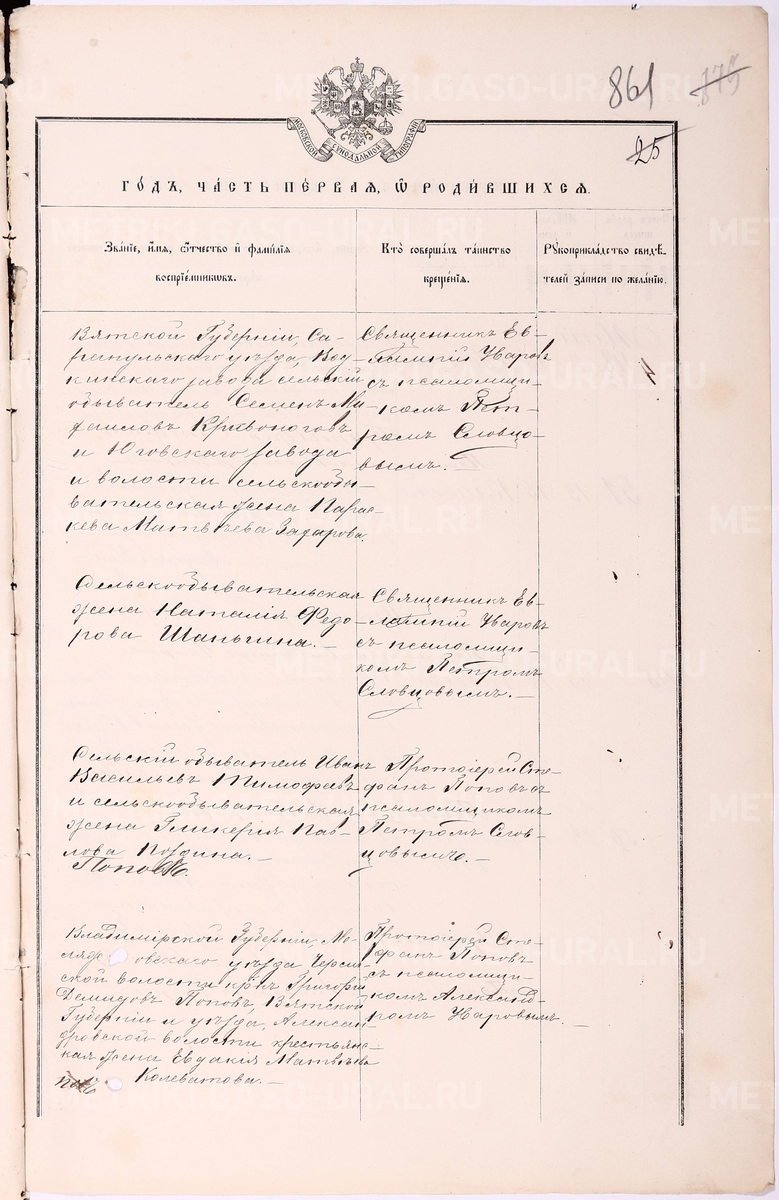 861
875
25
МОСКОВСКОЙ СѴНОДАЛЬНОЙ ТИПОГРАФІИ
ГО́ДЪ, ЧА́СТЬ ПЕ́РВАЯ, Ѿ РОДИ́ВШИХСЯ.
Зва́нїе, и́мѧ, ѻ҆́тчество и҆ фамѝлїѧ
воспрїе́мникѡвъ.
Кто̀ соверша́лъ та́инство
креще́нїѧ.
Рꙋкоприкла́дство свидѣ́-
телей за́писи по жела́нїю.
Вятской Губерніи, Са-
рапульскаго уѣзда, Вот-
кинскаго завода сельскій
обыватель Семенъ Ми-
хаиловъ Кривоноговъ
и Юговскаго завода
и волости сельскообы-
вательская жена Парас-
кева Матвѣева Захарова.
Священникъ Ев-
лампій Уваровъ
съ псаломщи-
комъ Пет-
ромъ Словцо-
вымъ.
Сельскообывательская
жена Наталія Федо-
рова Шаньгина.
Священникъ Ев-
лампій Уваровъ
съ псаломщи-
комъ Петромъ
Словцовымъ.
Сельскій обыватель Иванъ
Васильевъ Тимофеевъ
и сельскообывательская
жена Гликерія Пав-
лова Поздина.
Протоіерей Сте-
фанъ Поповъ съ
псаломщикомъ
Петромъ Слов-
цовымъ.
Владимірской Губерніи,
уѣзда
ской волости кр-нъ Григорій
Демидовъ Поповъ, Вятской
Губерніи и уѣзда, Алексан-
дровской волости крестьянс-
кая жена Евдокія Матвѣева
Колеватова.
Протоіерей Сте-
фанъ Поповъ
съ псаломщи-
комъ Александ-
ромъ Уваровымъ.
METRIKI.GASO-URAL.RU